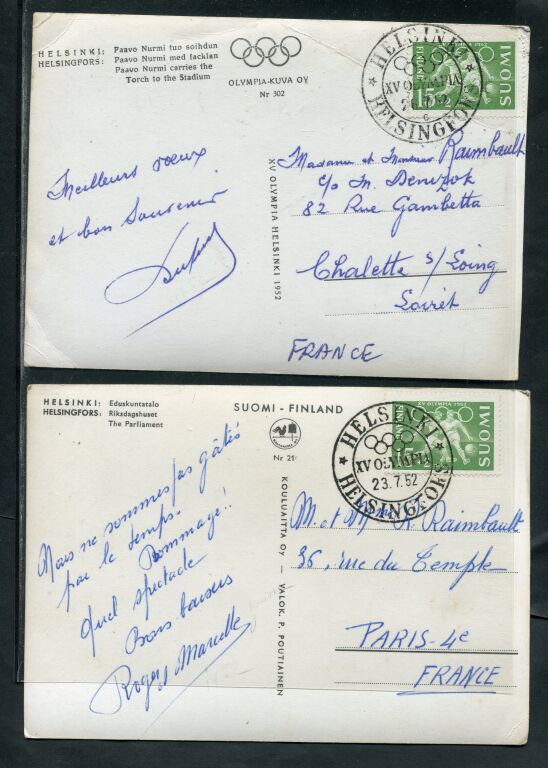 HELSINKI: Paavo Nurmi tuo soihdun
HELSINGFORS: Paavo Nurmi med facklan
Paavo Nurmi carries the
Torch to the Stadium
OLYMPIA-KUVA OY
Nr 302
HELSINKI
XV OLYMPIA
HELSINGFORS
SUOMI
XV OLYMPIA HELSINKI 1952
Meilleurs vœux
et bon souvenir
Madame et Monsieur Raimbault
c/o M.
82 Rue Gambetta
Chalette s/Loing
Loiret
FRANCE
HELSINKI: Eduskuntatalo
HELSINGFORS: Riksdagshuset
The Parliament
SUOMI - FINLAND
Nr 21
HELSINKI
XV OLYMPIA
23.7.52
HELSINGFORS
XV OLYMPIA 1952
SUOMI
KOULUAITTA OY — VALOK. P. POUTIAINEN
Nous ne sommes pas gâtés
par le temps.
Dommage!!
Quel spectacle
Bons baisers
Roger Marcelle
M. et Mme R. Raimbault
36, rue du Temple
PARIS-4e
FRANCE